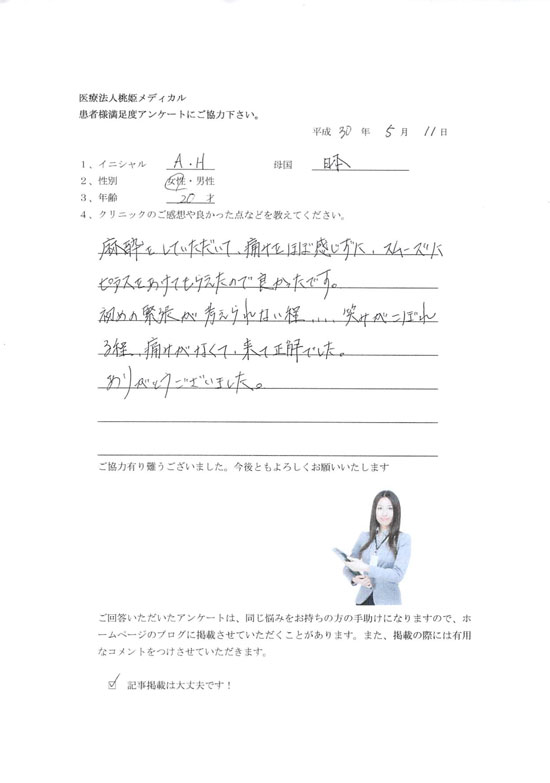 医療法人桃姫メディカル
患者様満足度アンケートにご協力下さい。
平成 30 年 5 月 11 日
1、イニシャル A.H 母国 日本
2、性別 女性・男性
3、年齢 20 才
4、クリニックのご感想や良かった点などを教えてください。
麻酔をしていただいて、痛みをほぼ感じずに、スムーズに
ピアスをあけてもらえたので良かったです。
初めの緊張が考えられない程、、、、笑みがこぼれ
る程、痛みが無くて、来て正解でした。
ありがとうございました。
ご協力有り難うございました。今後ともよろしくお願いいたします
ご回答いただいたアンケートは、同じ悩みをお持ちの方の手助けになりますので、ホ
ームページのブログに掲載させていただくことがあります。また、掲載の際には有用
なコメントをつけさせていただきます。
☑ 記事掲載は大丈夫です！